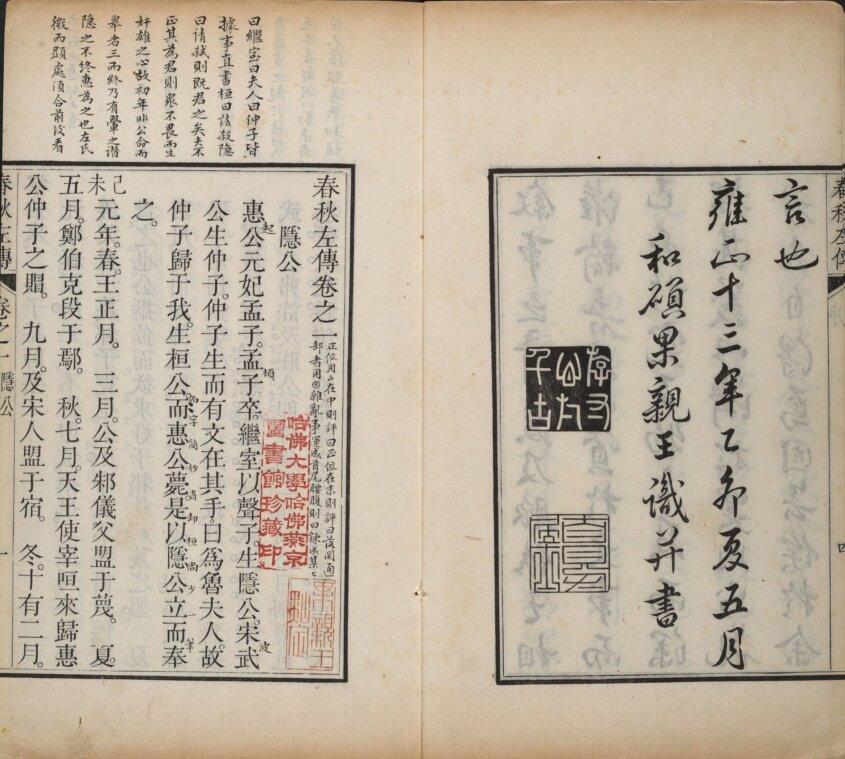 言也
雍正十三年乙卯夏五月
和碩果親王識并書
曰繼室曰夫人曰仲子皆
據事直書桓曰請殺隱
曰請弒則既君之矣夫不
正其為君則衆不畏而生
奸雄之心故初年非公命而
舉者三而終乃有翬之譖
隱之不終惠為之也左氏
微而顯處須合前後看
春秋左傳卷之一
隱公
惠公元妃孟子。孟子卒。繼室以聲子。生隱公。宋武
公生仲子。仲子生而有文在其手。曰為魯夫人。故
仲子歸于我。生桓公。而惠公薨。是以隱公立而奉
之。
己未
元年。春。王正月。 三月。公及邾儀父盟于蔑。 夏
五月。鄭伯克段于鄢。 秋。七月。天王使宰咺來歸惠
公仲子之賵。 九月。及宋人盟于宿。 冬。十有二月。
哈佛大學哈佛燕京
圖書館珍藏印
春秋左傳
卷之一 隱公
一